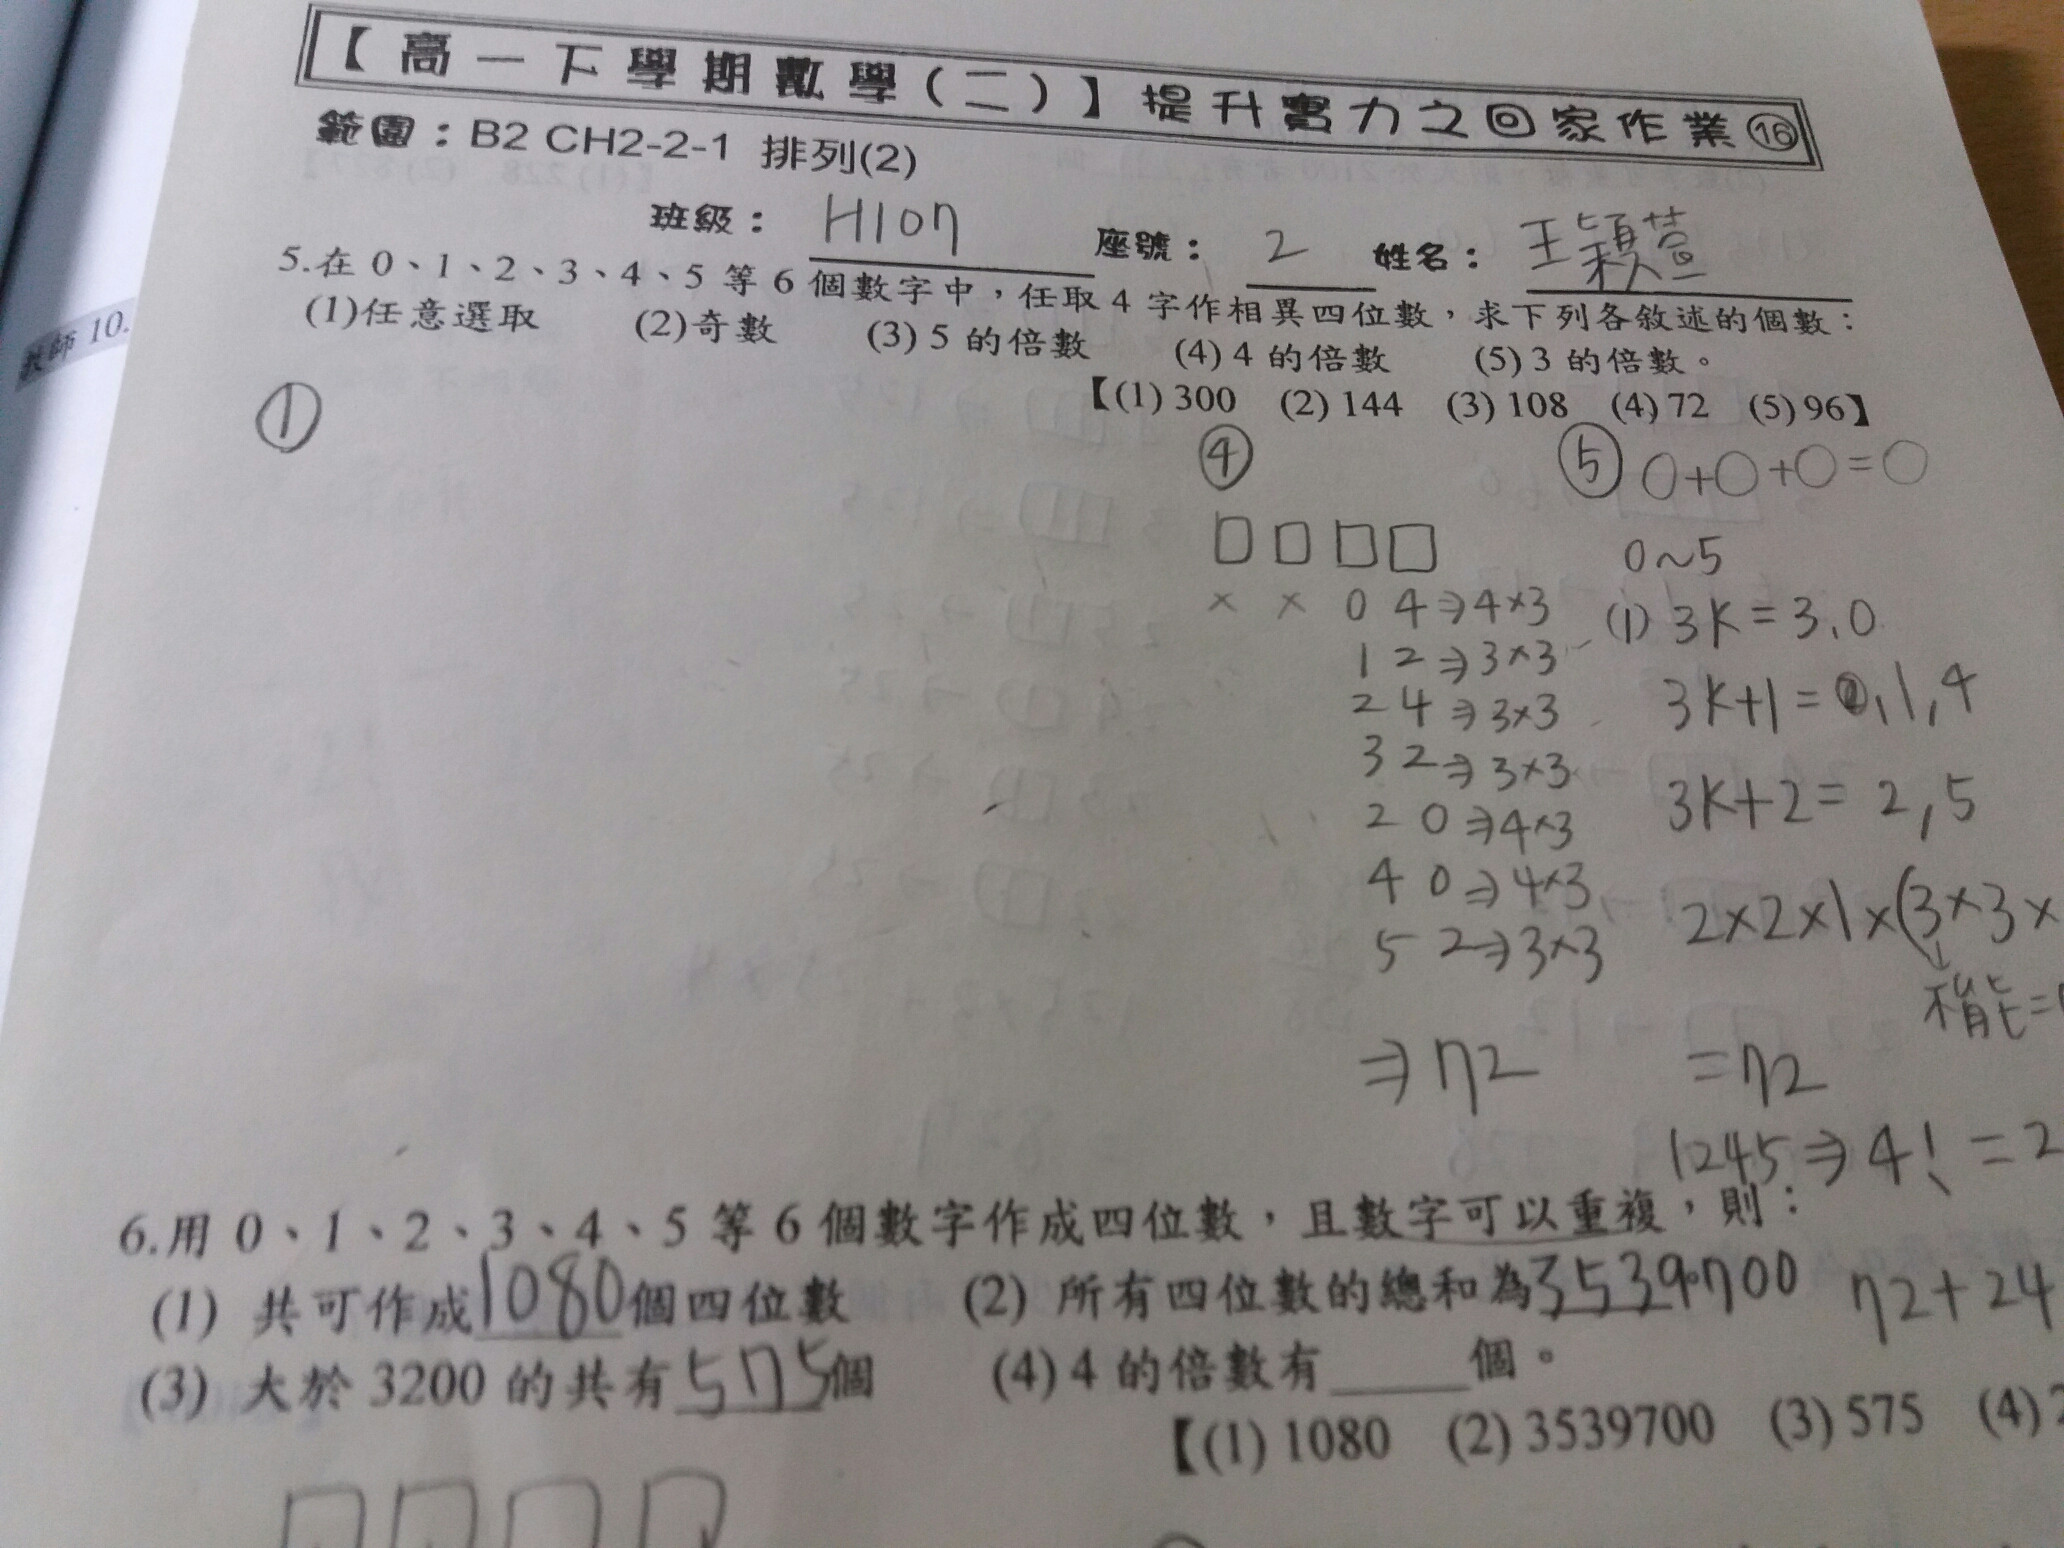 【高一下學期數學(二)】提升實力之回家作業⑯
範圍：B2 CH2-2-1 排列(2)
班級： H107 座號： 2 姓名： 王穎萱
教師 10.
5.在 0、1、2、3、4、5 等 6 個數字中，任取 4 字作相異四位數，求下列各敘述的個數：
(1)任意選取 (2)奇數 (3) 5 的倍數 (4) 4 的倍數 (5) 3 的倍數。
【(1) 300 (2) 144 (3) 108 (4) 72 (5) 96】
①
④
□ □ □ □
× × 0 4 ⇒ 4×3
1 2 ⇒ 3×3
2 4 ⇒ 3×3
3 2 ⇒ 3×3
2 0 ⇒ 4×3
4 0 ⇒ 4×3
5 2 ⇒ 3×3
⇒ 72
⑤ 0+0+0=0
0~5
(1) 3K = 3,0
3K+1 = 1,4
3K+2 = 2,5
2×2×1×(3×3×
不可能=
=72
1245 ⇒ 4! = 2
72+24
6.用 0、1、2、3、4、5 等 6 個數字作成四位數，且數字可以重複，則：
(1) 共可作成1080個四位數 (2) 所有四位數的總和為3539700
(3) 大於 3200 的共有575個 (4) 4 的倍數有____個。
【(1) 1080 (2) 3539700 (3) 575 (4)